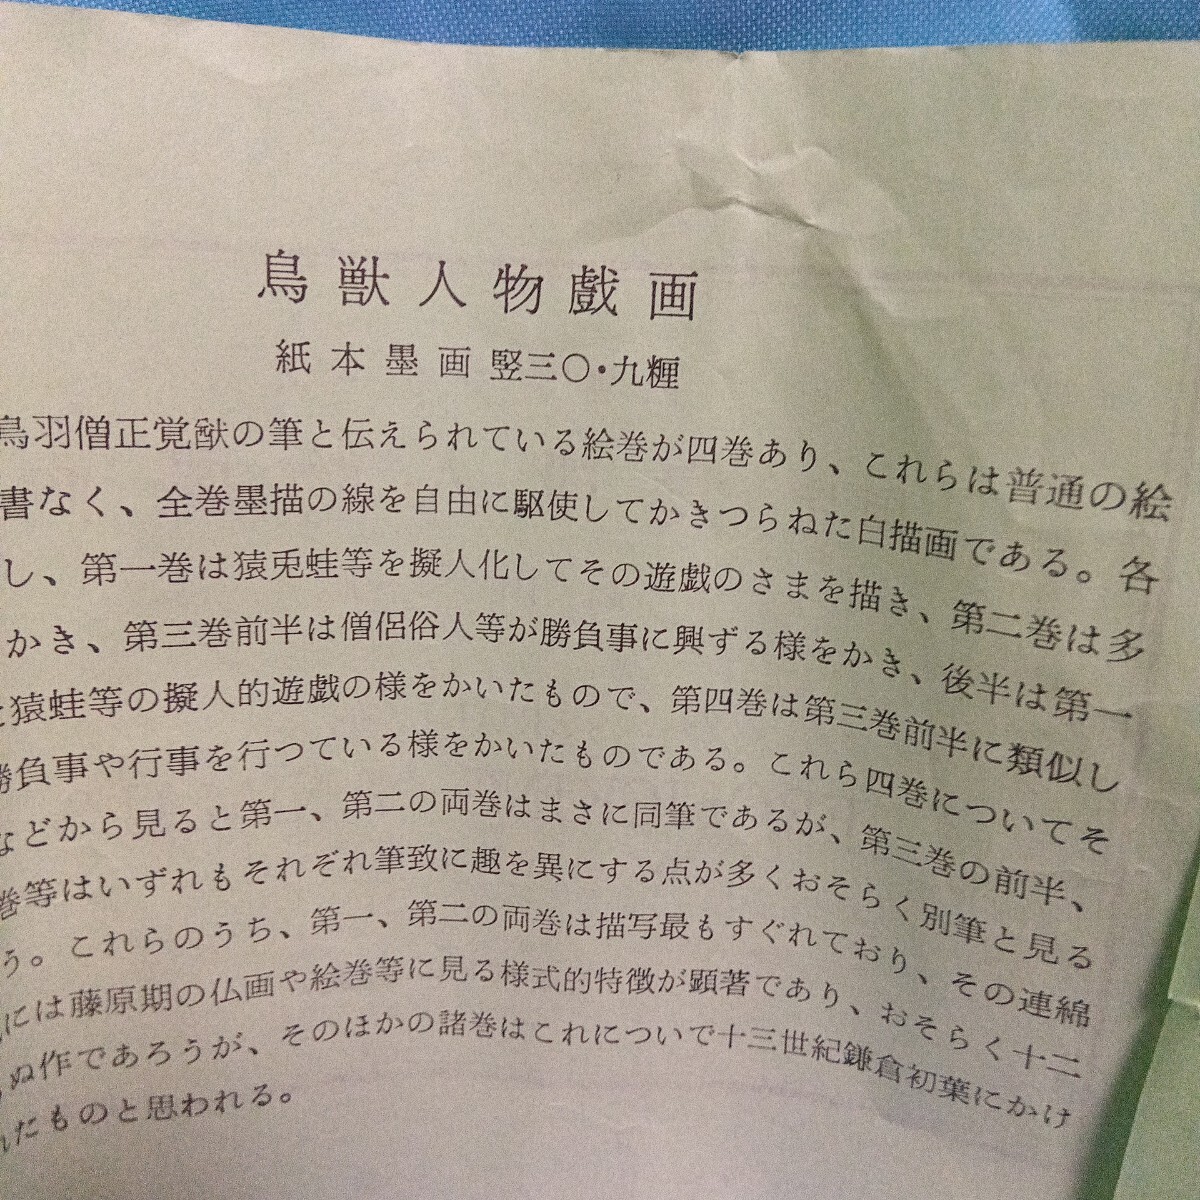 鳥獣人物戯画
紙本墨画 竪三〇・九糎
鳥羽僧正覚猷の筆と伝えられている絵巻が四巻あり、これらは普通の絵
書なく、全巻墨描の線を自由に駆使してかきつらねた白描画である。各
し、第一巻は猿兎蛙等を擬人化してその遊戯のさまを描き、第二巻は多
かき、第三巻前半は僧侶俗人等が勝負事に興ずる様をかき、後半は第一
猿蛙等の擬人的遊戯の様をかいたもので、第四巻は第三巻前半に類似し
勝負事や行事を行つている様をかいたものである。これら四巻についてそ
などから見ると第一、第二の両巻はまさに同筆であるが、第三巻の前半、
巻等はいずれもそれぞれ筆致に趣を異にする点が多くおそらく別筆と見る
う。これらのうち、第一、第二の両巻は描写最もすぐれており、その連綿
には藤原期の仏画や絵巻等に見る様式的特徴が顕著であり、おそらく十二
ぬ作であろうが、そのほかの諸巻はこれについで十三世紀鎌倉初葉にかけ
たものと思われる。